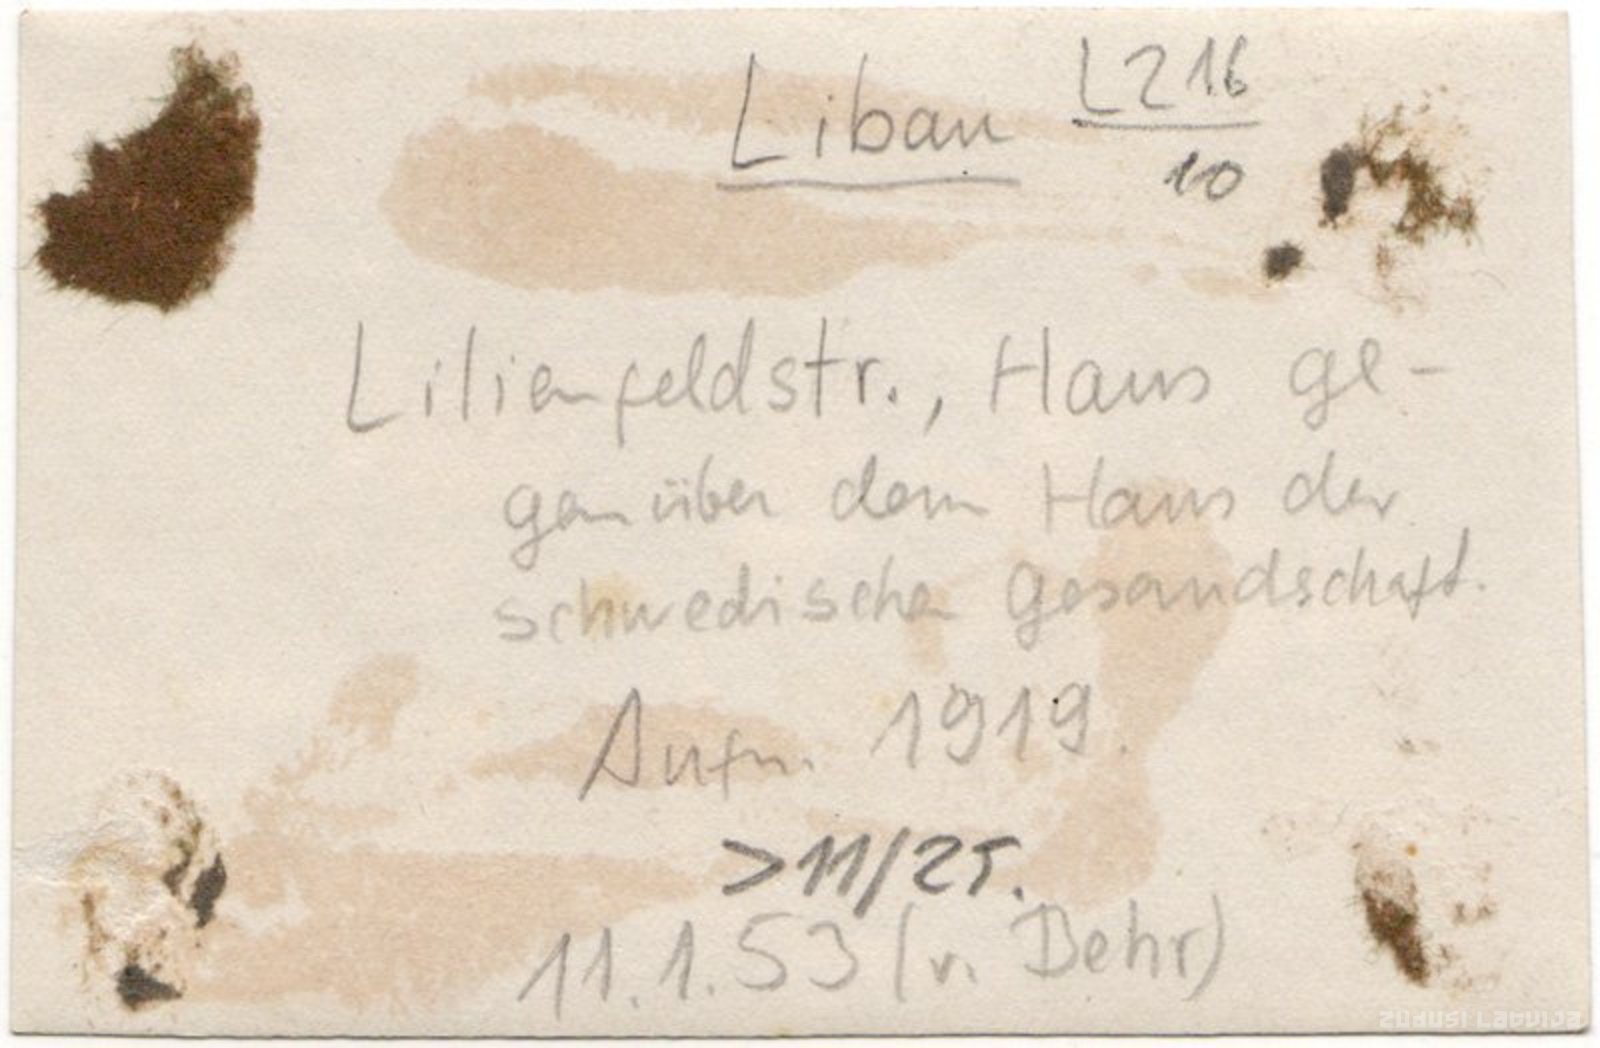 Libau
L216
10
Lilienfeldstr., Haus ge-
genüber dem Haus der
schwedischen Gesandschaft.
Aufn. 1919.
>11/25.
11.1.53 (v. Behr)
ZUDUSI LATVIJA